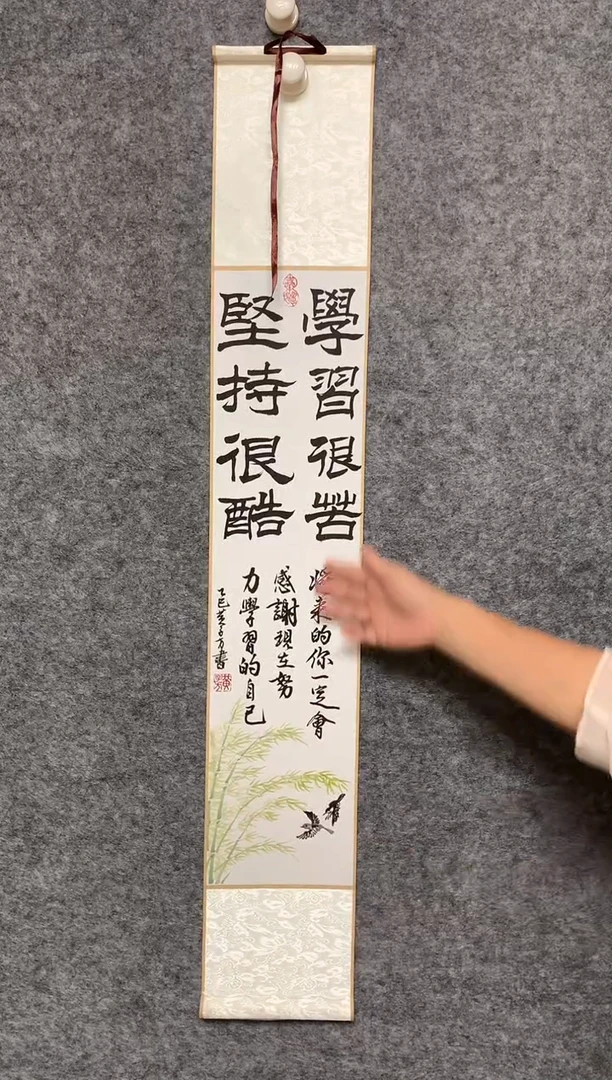 學習很苦
堅持很酷
將来的你一定會
感謝現在努
力學習的自己
乙巳黄
書